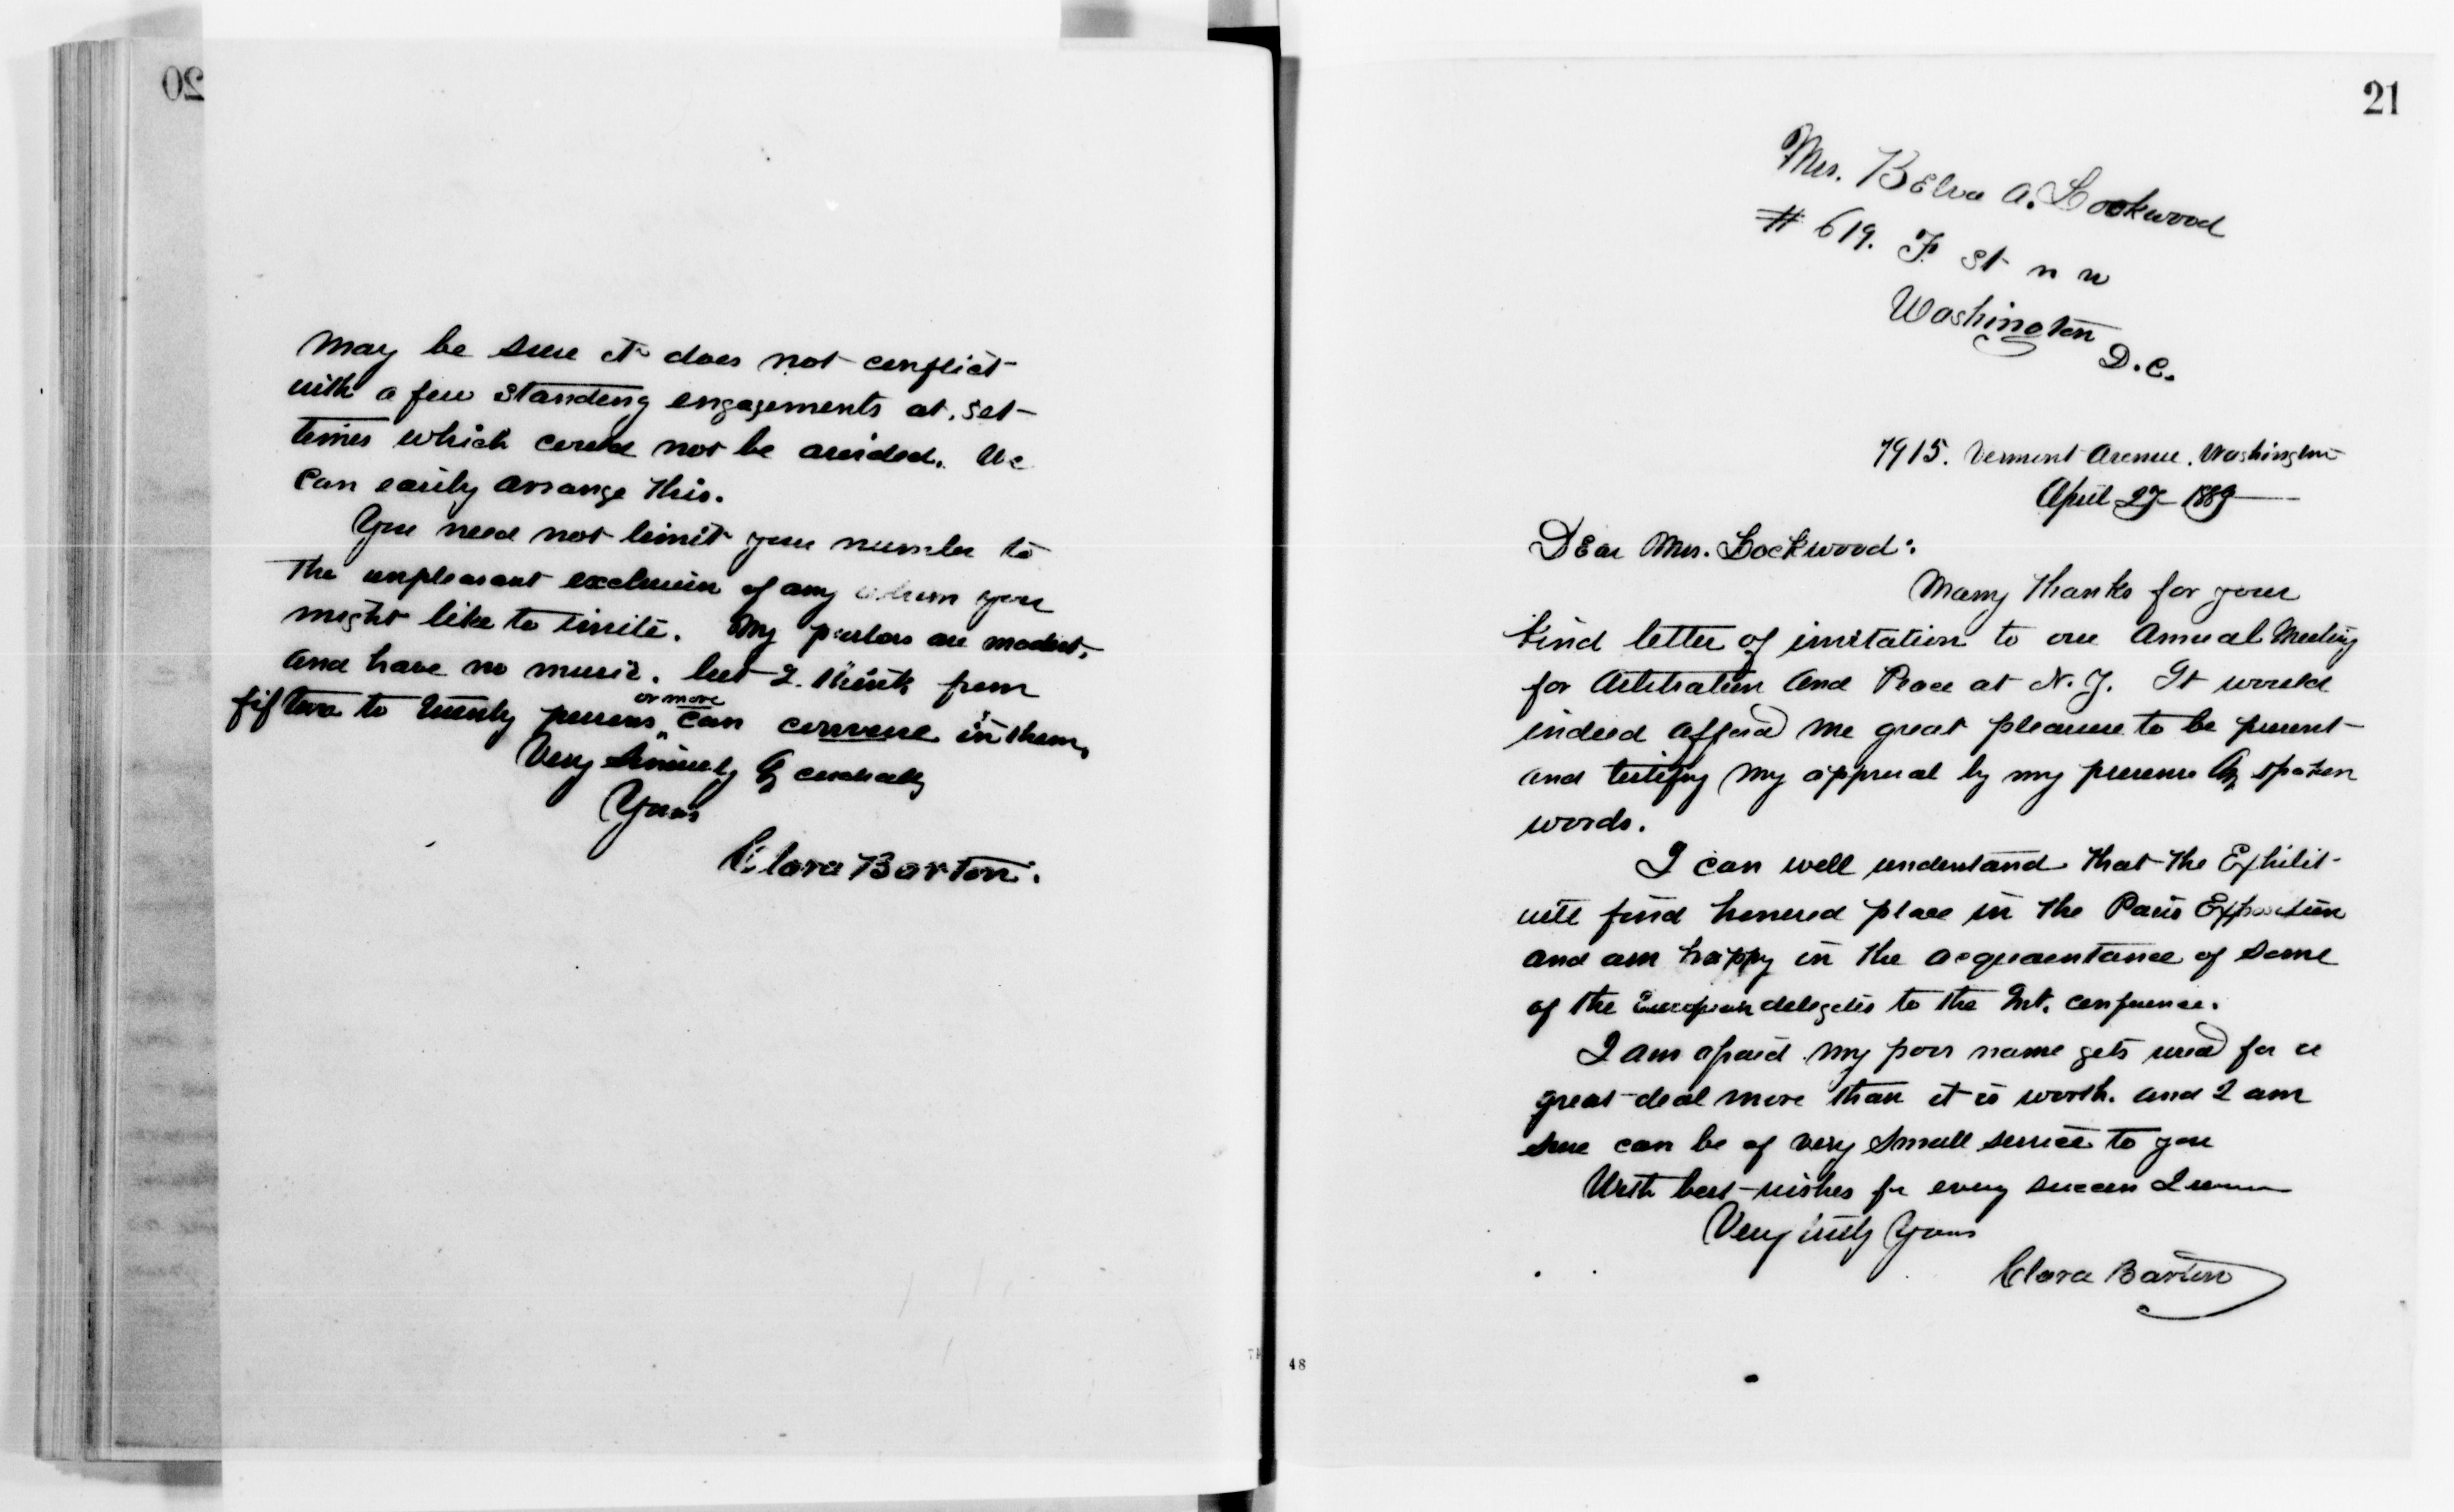 20
may be sure it does not conflict
with a few standing engagements at set
times which could not be avoided. We
can easily arrange this.
You need not limit your number to
the unpleasant exclusion of any whom you
might like to invite. My parlors are modest,
and have no music. but I think from
or more
fifteen to twenty persons can convene in them,
Very Sincerely & cordially
Yours
Clara Barton.
21
Mrs. Belva A. Lockwood
# 619. F St n w
Washington
D.C.
915. Vermont Avenue. Washington
April 27 1889
Dear Mrs. Lockwood:
Many thanks for your
kind letter of invitation to our Annual Meeting
for Arbitration and Peace at N.Y. It would
indeed afford me great pleasure to be present
and testify my approval by my presence & spoken
words.
I can well understand that the Exhibit
will find honored place in the Paris Exposition
and am happy in the acquaintance of some
of the European delegates to the Int. conference.
I am afraid my poor name gets used for a
great deal more than it is worth. and I am
sure can be of very small service to you
With best wishes for every success I
Very truly Yours
Clara Barton
48